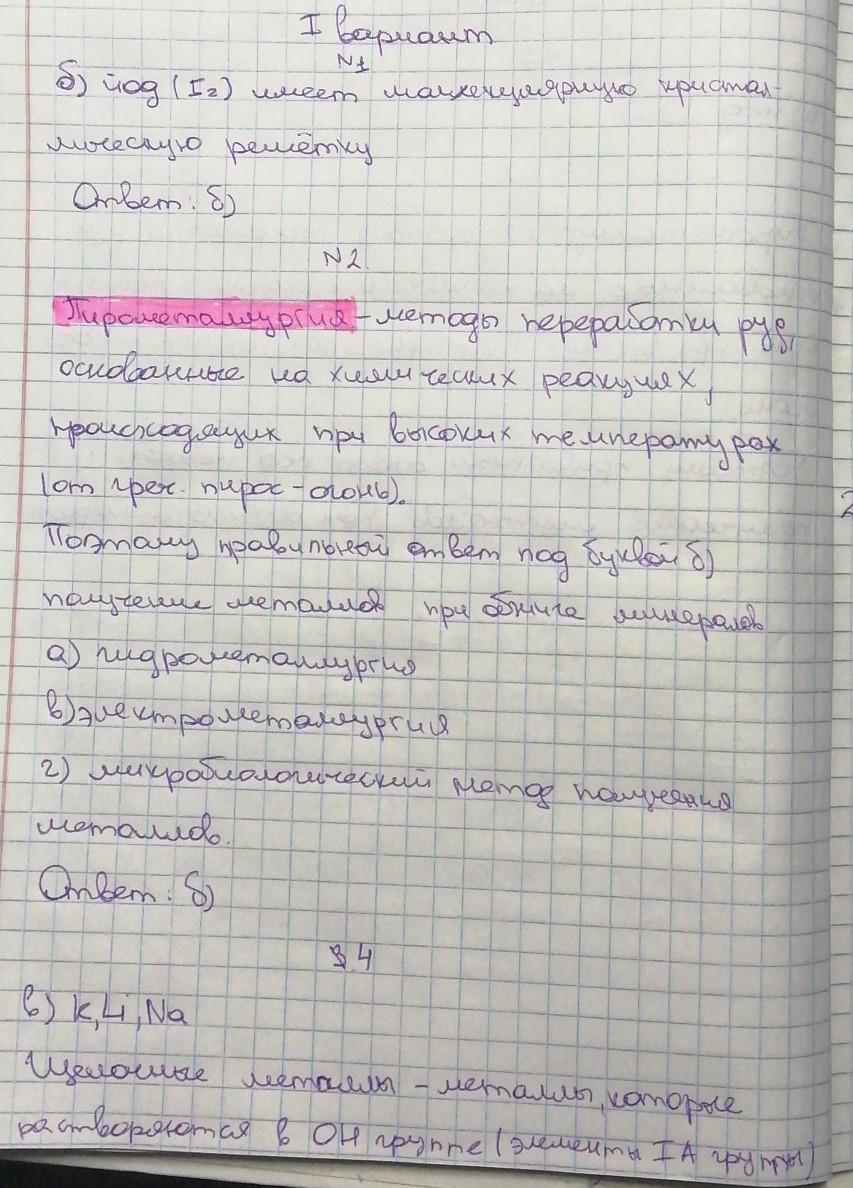 I вариант
N1
б) йод (I₂) имеет молекулярную кристал-
лическую решётку
Ответ: б)
N2.
Пирометаллургия - методы переработки руд,
основанные на химических реакциях,
происходящих при высоких температурах
(от греч. пирос - огонь).
Поэтому правильный ответ под буквой б)
получение металлов при обжиге минералов
а) гидрометаллургия
в) электрометаллургия
г) микробиологический метод получения
металлов.
Ответ: б)
4
в) K, Li, Na
Щелочные металлы - металлы, которые
растворяются в OH группе (элементы IA группы)